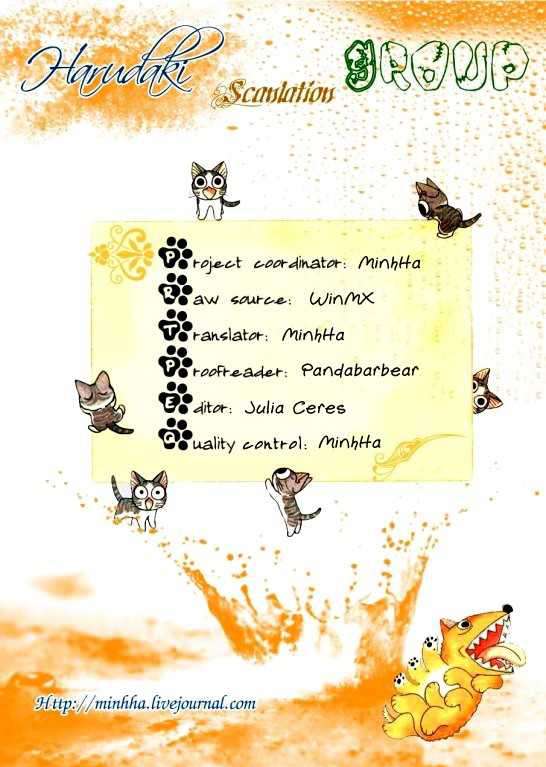 Harudaki Scanlation GROUP
Project coordinator: MinhHa
Raw source: WinMX
Translator: MinhHa
Proofreader: Pandabarbear
Editor: Julia Ceres
Quality control: MinhHa
Http://minhha.livejournal.com